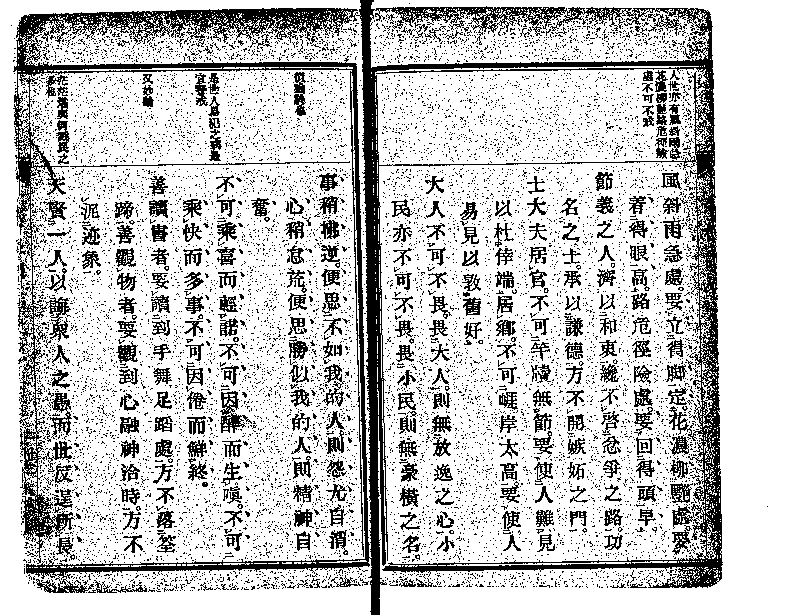 風斜雨急處。要立得脚定。花濃柳艷處。要
着得眼高。路危徑險處。要回得頭早。
節義之人。濟以和衷。纔不啓忿爭之路。功
名之士。承以謙德。方不開嫉妬之門。
士大夫居官。不可竿牘無節。要使人難見
以杜倖端。居鄉。不可崕岸太高。要使人
易見以敦舊好。
大人不可不畏。畏大人。則無放逸之心。小
民亦不可不畏。畏小民。則無豪橫之名。
事稍拂逆。便思不如我的人。則怨尤自消。
心稍怠荒。便思勝似我的人。則精神自
奮。
是世人易犯之病最
宜警戒
不可乘喜而輕諾。不可因醉而生嗔。不可
乘快而多事。不可因倦而鮮終。
善讀書者。要讀到手舞足蹈處。方不落筌
蹄。善觀物者。要觀到心融神洽時。方不
泥迹象。
天賢一人。以誨衆人之愚。而世反逞所長。